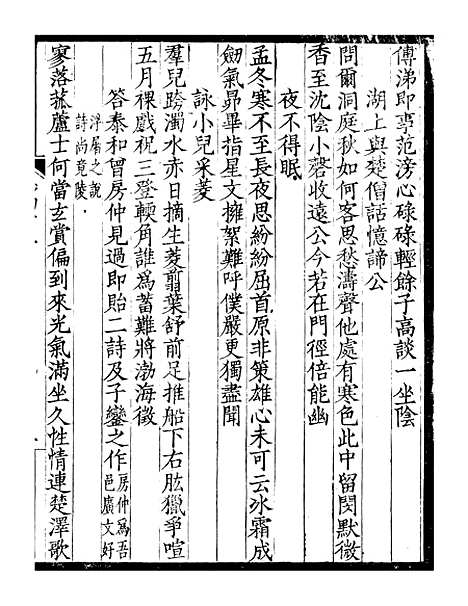 傅涕即事范滂心碌碌輕餘子高談一坐陰
湖上與楚僧話憶諦公
問爾洞庭秋如何客思愁濤聲他處有寒色此中留閔默微
香至沈陰小磬收遠公今若在門徑倍能幽
夜不得眠
孟冬寒不至長夜思紛紛屈首原非策雄心未可云氷霜成
劒氣昴畢指星文擁絮難呼僕嚴更獨盡聞
詠小兒采菱
羣兒跨濁水赤日摘生菱翦葉舒前足推船下右肱獵爭喧
五月裸戲祝三登轉角誰為蓄難將渤海徵
答泰和曾房仲見過即貽二詩及子鑾之作房仲為吾
邑廣文好
浮屠之說
詩尚竟陵
寥落菰蘆士何當玄賞偏到來光氣滿坐久性情連楚澤歌